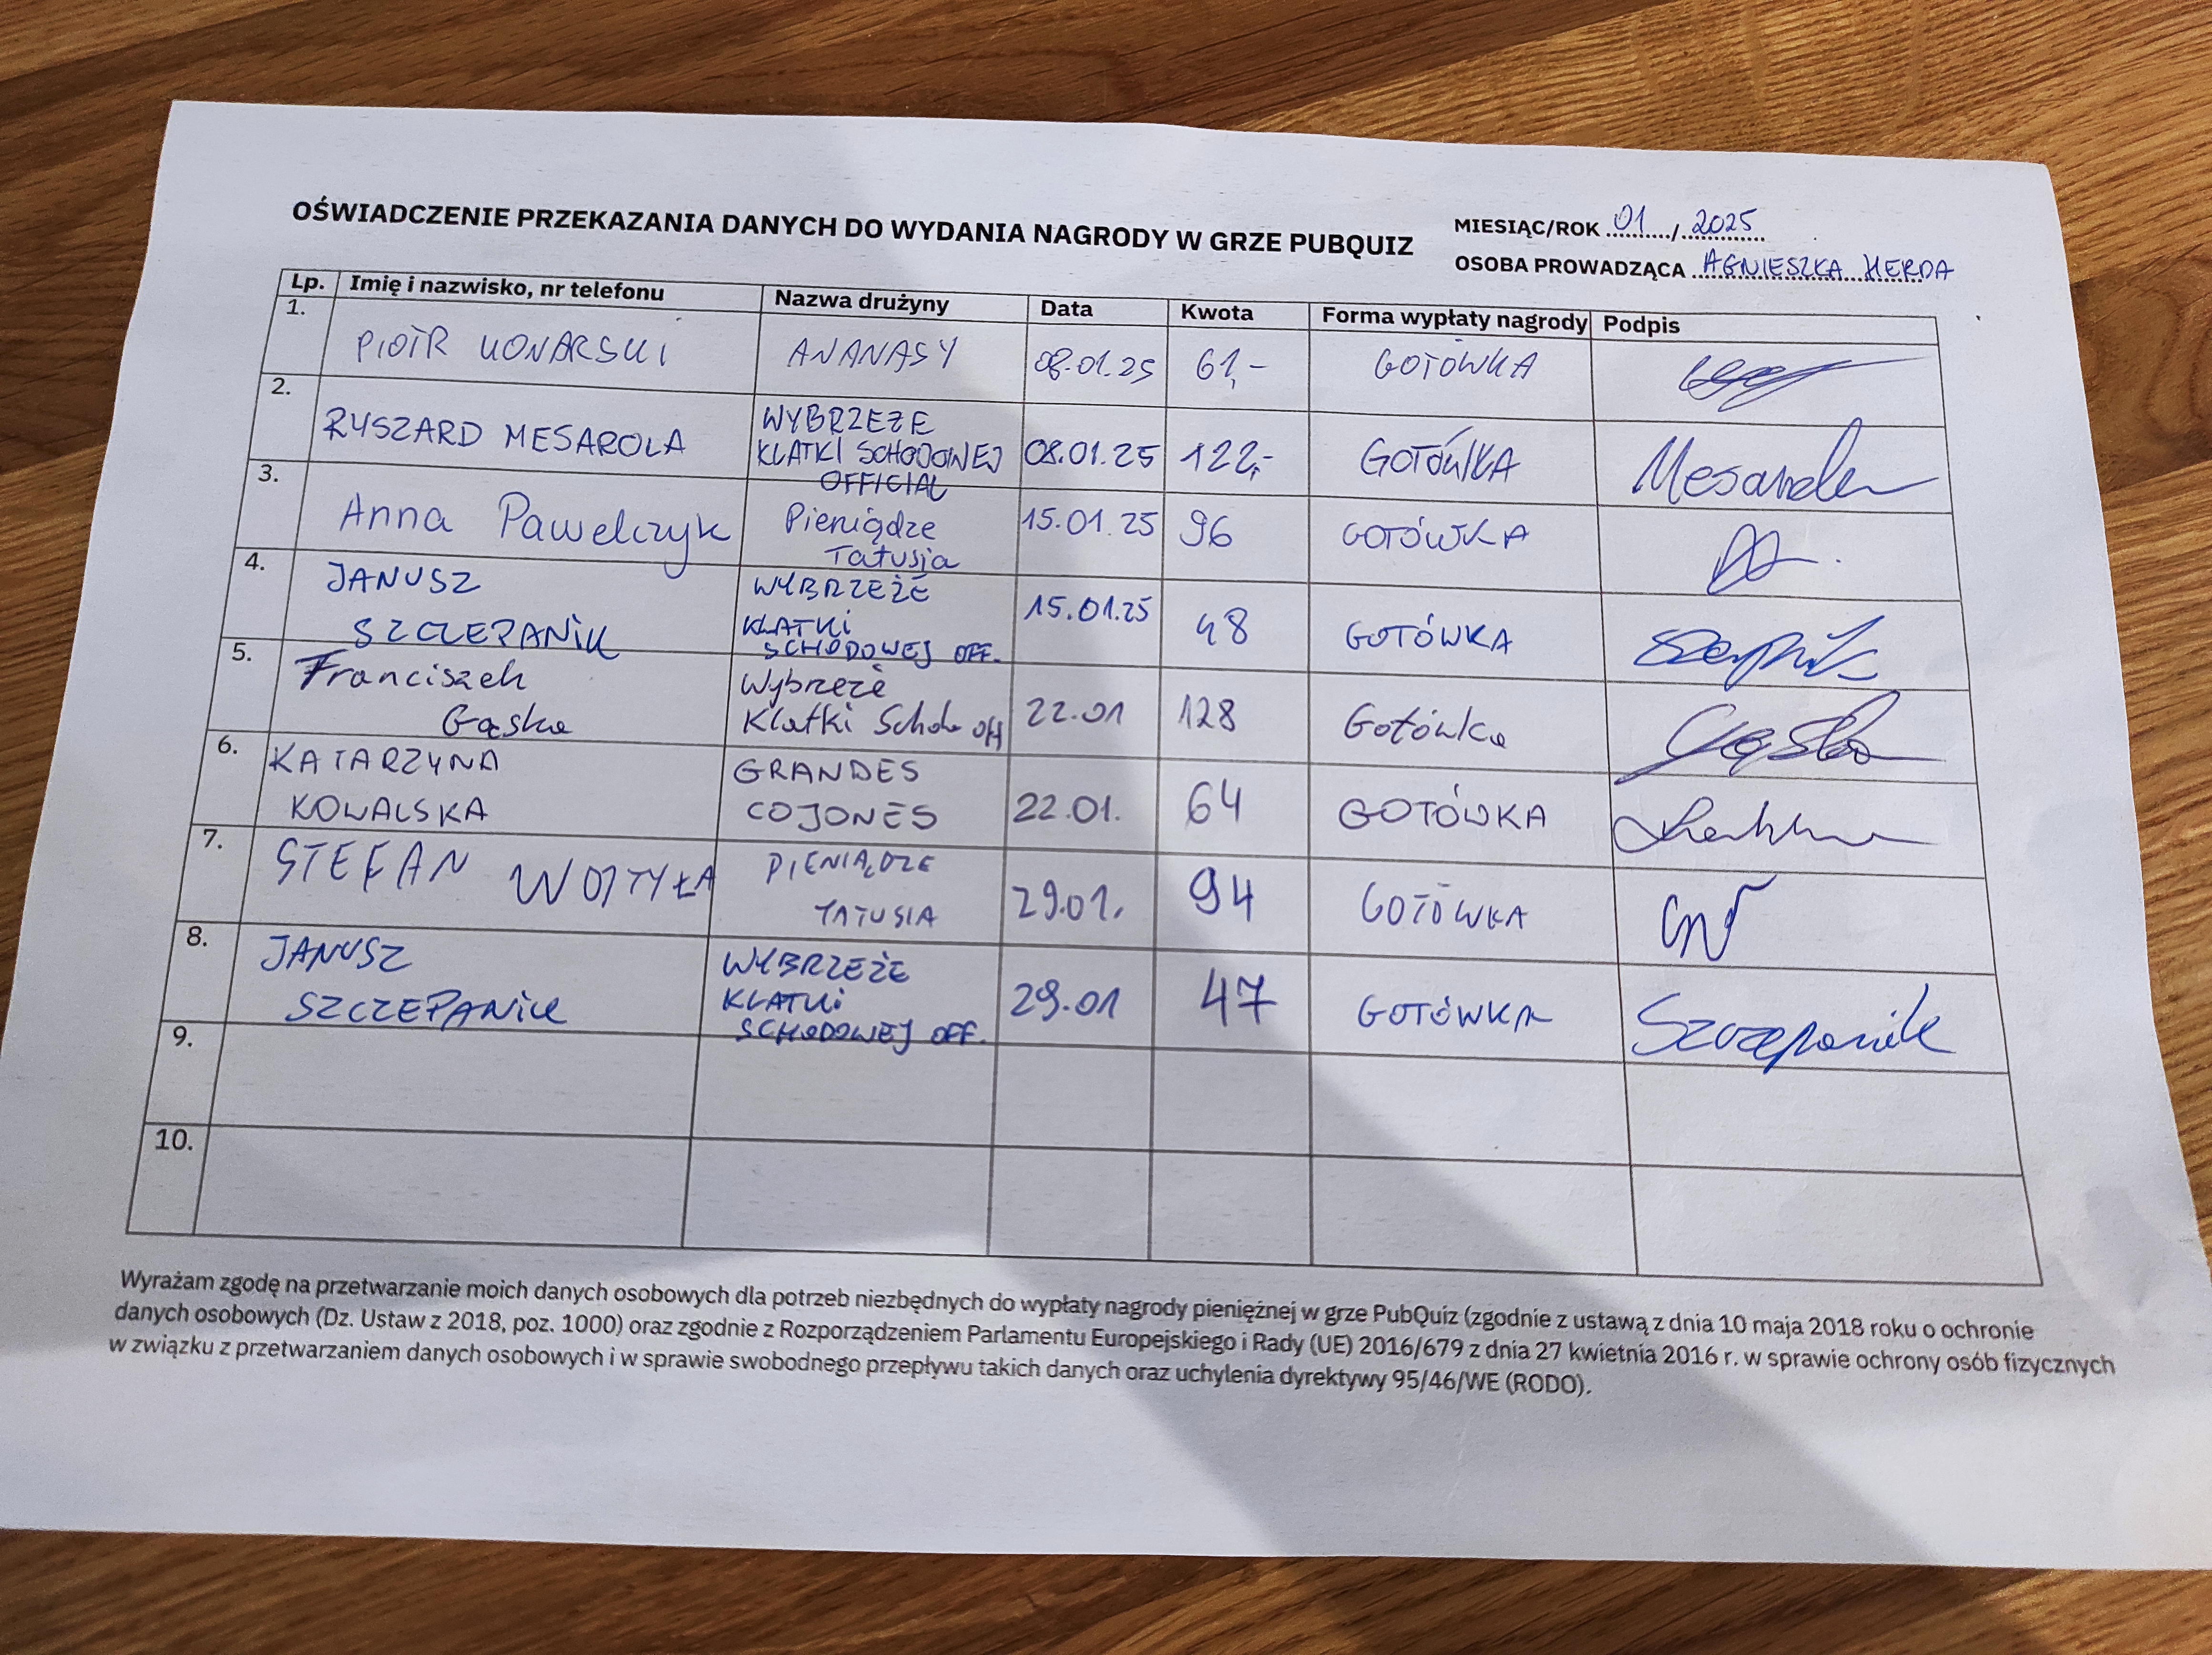 OŚWIADCZENIE PRZEKAZANIA DANYCH DO WYDANIA NAGRODY W GRZE PUBQUIZ
MIESIĄC/ROK 01 / 2025
OSOBA PROWADZĄCA AGNIESZKA HERDA
Lp. Imię i nazwisko, nr telefonu Nazwa drużyny Data Kwota Forma wypłaty nagrody Podpis
1. PIOTR KONARSKI ANANASY 08.01.25 61,- GOTÓWKA
2. RYSZARD MESAROLA WYBRZEŻE
KLATKI SCHODOWEJ
OFFICIAL 08.01.25 122,- GOTÓWKA
3. Anna Pawelczyk Pieniądze
Tatusia 15.01.25 96 GOTÓWKA
4. JANUSZ
SZCZEPANIK WYBRZEŻE
KLATKI
SCHODOWEJ OFF. 15.01.25 48 GOTÓWKA
5. Franciszek
Gąska Wybrzeże
Klatki Schodo Off 22.01 128 Gotówka Gąska
6. KATARZYNA
KOWALSKA GRANDES
COJONES 22.01. 64 GOTÓWKA
7. STEFAN WOJTYŁA PIENIĄDZE
TATUSIA 29.01. 94 GOTÓWKA
8. JANUSZ
SZCZEPANIK WYBRZEŻE
KLATKI
SCHODOWEJ OFF. 29.01 47 GOTÓWKA Szczepanik
9.
10.
Wyrażam zgodę na przetwarzanie moich danych osobowych dla potrzeb niezbędnych do wypłaty nagrody pieniężnej w grze PubQuiz (zgodnie z ustawą z dnia 10 maja 2018 roku o ochronie
danych osobowych (Dz. Ustaw z 2018, poz. 1000) oraz zgodnie z Rozporządzeniem Parlamentu Europejskiego i Rady (UE) 2016/679 z dnia 27 kwietnia 2016 r. w sprawie ochrony osób fizycznych
w związku z przetwarzaniem danych osobowych i w sprawie swobodnego przepływu takich danych oraz uchylenia dyrektywy 95/46/WE (RODO).